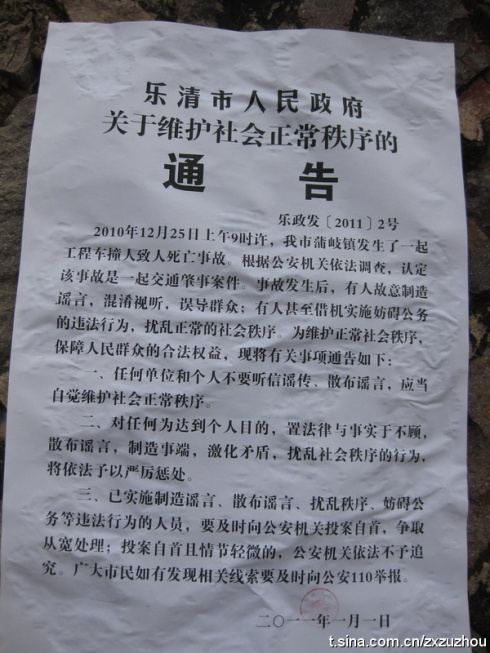 乐清市人民政府
关于维护社会正常秩序的
通 告
乐政发〔2011〕2号
2010年12月25日上午9时许，我市蒲岐镇发生了一起
工程车撞人致人死亡事故。根据公安机关依法调查，认定
该事故是一起交通肇事案件。事故发生后，有人故意制造
谣言，混淆视听，误导群众；有人甚至借机实施妨碍公务
的违法行为，扰乱正常的社会秩序。为维护正常社会秩序，
保障人民群众的合法权益，现将有关事项通告如下：
一、任何单位和个人不要听信谣传、散布谣言，应当
自觉维护社会正常秩序。
二、对任何为达到个人目的，置法律与事实于不顾，
散布谣言，制造事端，激化矛盾，扰乱社会秩序的行为，
将依法予以严厉惩处。
三、已实施制造谣言、散布谣言、扰乱秩序、妨碍公
务等违法行为的人员，要及时向公安机关投案自首，争取
从宽处理；投案自首且情节轻微的，公安机关依法不予追
究。广大市民如有发现相关线索要及时向公安110举报。
二〇一一年一月一日
t.sina.com.cn/zxzuzhou